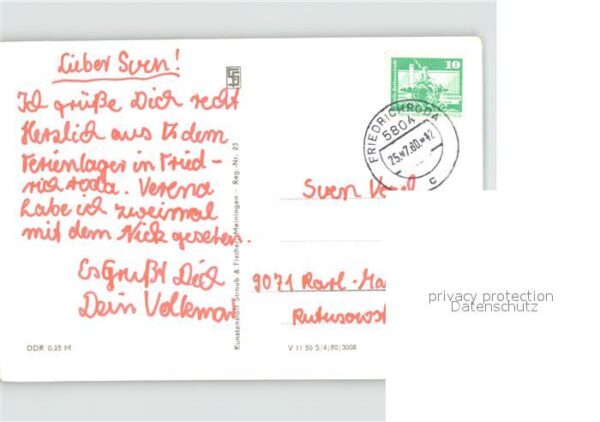 Lieber Sven!
Ich grüße Dich recht
Herzlich aus dem
Ferienlager in Fried-
richroda. Verena
habe ich zweimal
mit dem Nick gesehen.
Es Grüßt Dich
Dein Volkmar
DDR 0,25 M
Kunstanstalt Straub & Fischer Meiningen · Reg.-Nr. 23
V 11 50 S/4/80/3008
10
FRIEDRICHRODA
5804
25.*7.80.*12
c
Sven
9071 Karl-Ma
privacy protection
Datenschutz